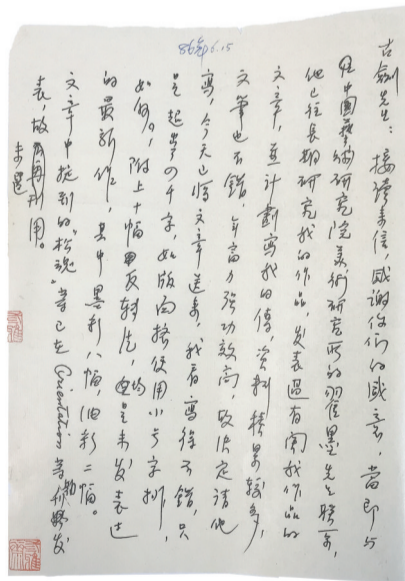 86年6.15
古劍先生：接讀来信，感谢你们的盛意，當即与
在中國藝術研究院美術研究所的翟墨先生联系，
他已经長期研究我的作品，发表過有関我作品的
文章，並计劃寫我的傳，资料積累较多，
文笔也不错，年富力强功效高，故决定请他
寫，今天已将文章送来，我看寫得不错，只
是起字4千字，如版面挤使用小号字排，
如何？附上十幅反转片，均是未发表过
的最新作，其中墨彩八幅，油彩二幅。
文章中提到的"松魂"等已在Orientation等刊物发
表，故未選用。